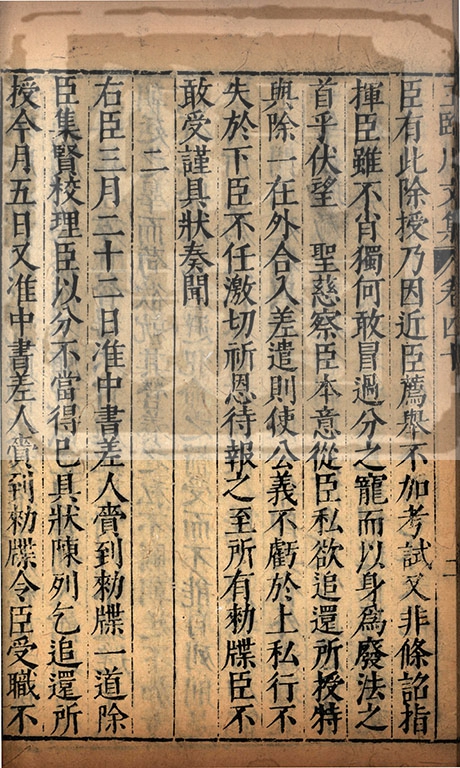 王臨川文集 卷四十
臣有此除授乃因近臣薦舉不加考試又非條詔指
揮臣雖不肖獨何敢冒過分之寵而以身爲廢法之
首乎伏望 聖慈察臣本意從臣私欲追還所授特
與除一在外合入差遣則使公義不虧於上私行不
失於下臣不任激切祈恩待報之至所有勑牒臣不
敢受謹具狀奏聞
二
右臣三月二十二日准中書差人賫到勑牒一道除
臣集賢校理臣以分不當得已具狀陳列乞追還所
授今月五日又准中書差人賫到勑牒令臣受職不